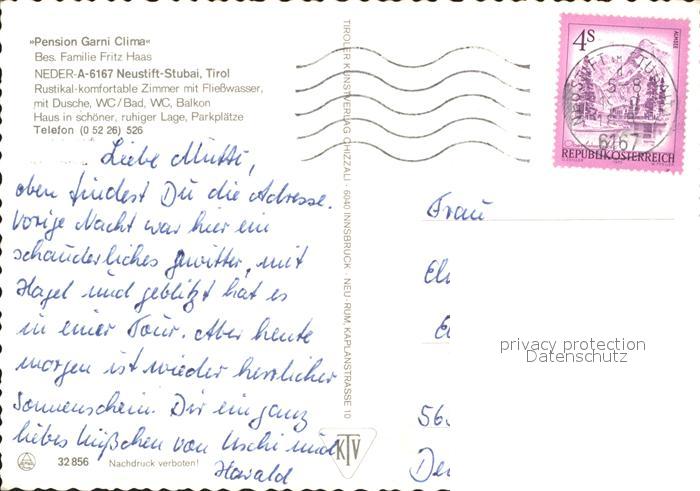 »Pension Garni Clima«
Bes. Familie Fritz Haas
NEDER-A-6167 Neustift-Stubai, Tirol
Rustikal-komfortable Zimmer mit Fließwasser,
mit Dusche, WC/Bad, WC, Balkon
Haus in schöner, ruhiger Lage, Parkplätze
Telefon (0 52 26) 526
Liebe Mutti,
oben findest Du die Adresse.
Vorige Nacht war hier ein
schauderliches Gewitter, mit
Hagel und geblitzt hat es
in einer Tour. Aber heute
morgen ist wieder herrlicher
Sonnenschein. Dir ein ganz
liebes Küßchen von Uschi und
32 856 Nachdruck verboten!
TIROLER KUNSTVERLAG CHIZZALI · 6040 INNSBRUCK · NEU-RUM, KAPLANSTRASSE 10
KTV
4s
ALMSEE
6167
REPUBLIK ÖSTERREICH
Frau
privacy protection
Datenschutz
56